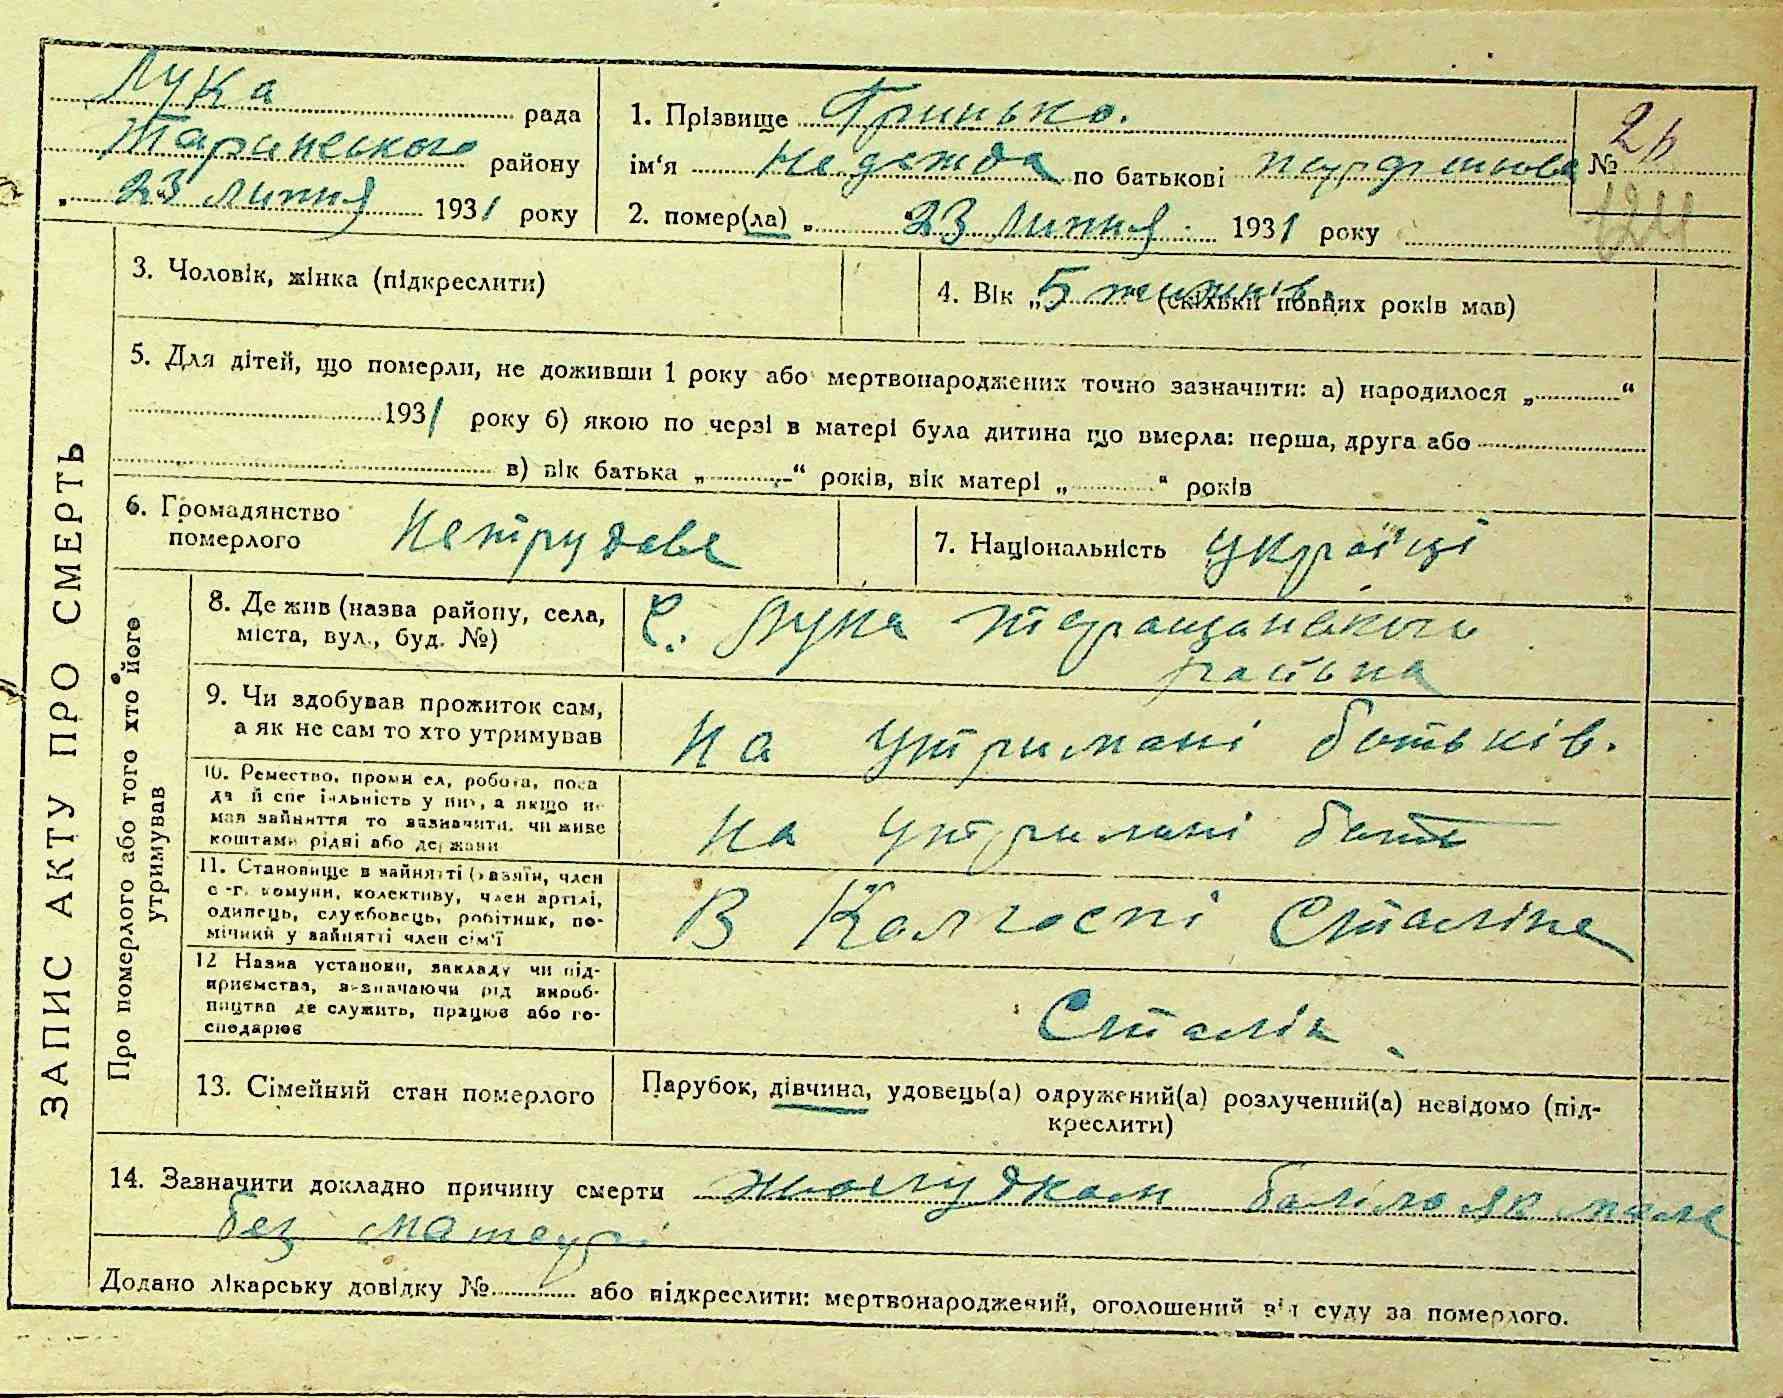 ЗАПИС АКТУ ПРО СМЕРТЬ
Лука рада
району
23 липня 1931 року
1. Прізвище Гринько.
ім'я Надежда по батькові
№ 26
124
2. помер(ла) „ 23 липня 1931 року
3. Чоловік, жінка (підкреслити)
4. Вік „ 5 тижнів. (скільки повних років мав)
5. Для дітей, що померли, не доживши 1 року або мертвонароджених точно зазначити: а) народилося „ “
1931 року б) якою по черзі в матері була дитина що вмерла: перша, друга або
в) вік батька „ “ років, вік матері „ “ років
6. Громадянство померлого нетрудове
7. Національність україці
Про померлого або того хто його утримував
8. Де жив (назва району, села,
міста, вул., буд. №)
С. Лука Таращанського
району
9. Чи здобував прожиток сам,
а як не сам то хто утримував
на утримані батьків.
10. Ремество, промисел, робота, поса
да й спеціальність у них, а якщо не
мав зайняття то зазначити, чи живе
коштами рідні або держави
на утримані бать
11. Становище в зайнятті (хазяїн, член
с.-г. комуни, колективу, член артілі,
одинець, службовець, робітник, по-
мічний у зайнятті член сім'ї
В Колгоспі Сталіна
12 Назва установи, закладу чи під-
приємства, зазначаючи рід вироб-
ництва де служить, працює або го-
сподарює
Сталін
13. Сімейний стан померлого
Парубок, дівчина, удовець(а) одружений(а) розлучений(а) невідомо (під-
креслити)
14. Зазначити докладно причину смерти жолудком боліло як мале
без матері
Додано лікарську довідку № або підкреслити: мертвонароджений, оголошений від суду за померлого.